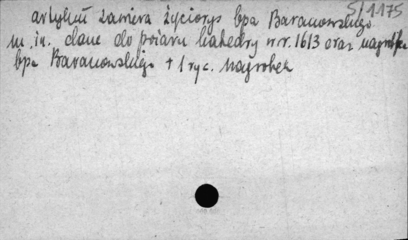 5/1175
artykuł zawiera życiorys bpa Baranowskiego
m.in. dane do pożaru katedry w r. 1613 oraz nagrobka
bpa Baranowskiego + 1 ryc. nagrobek